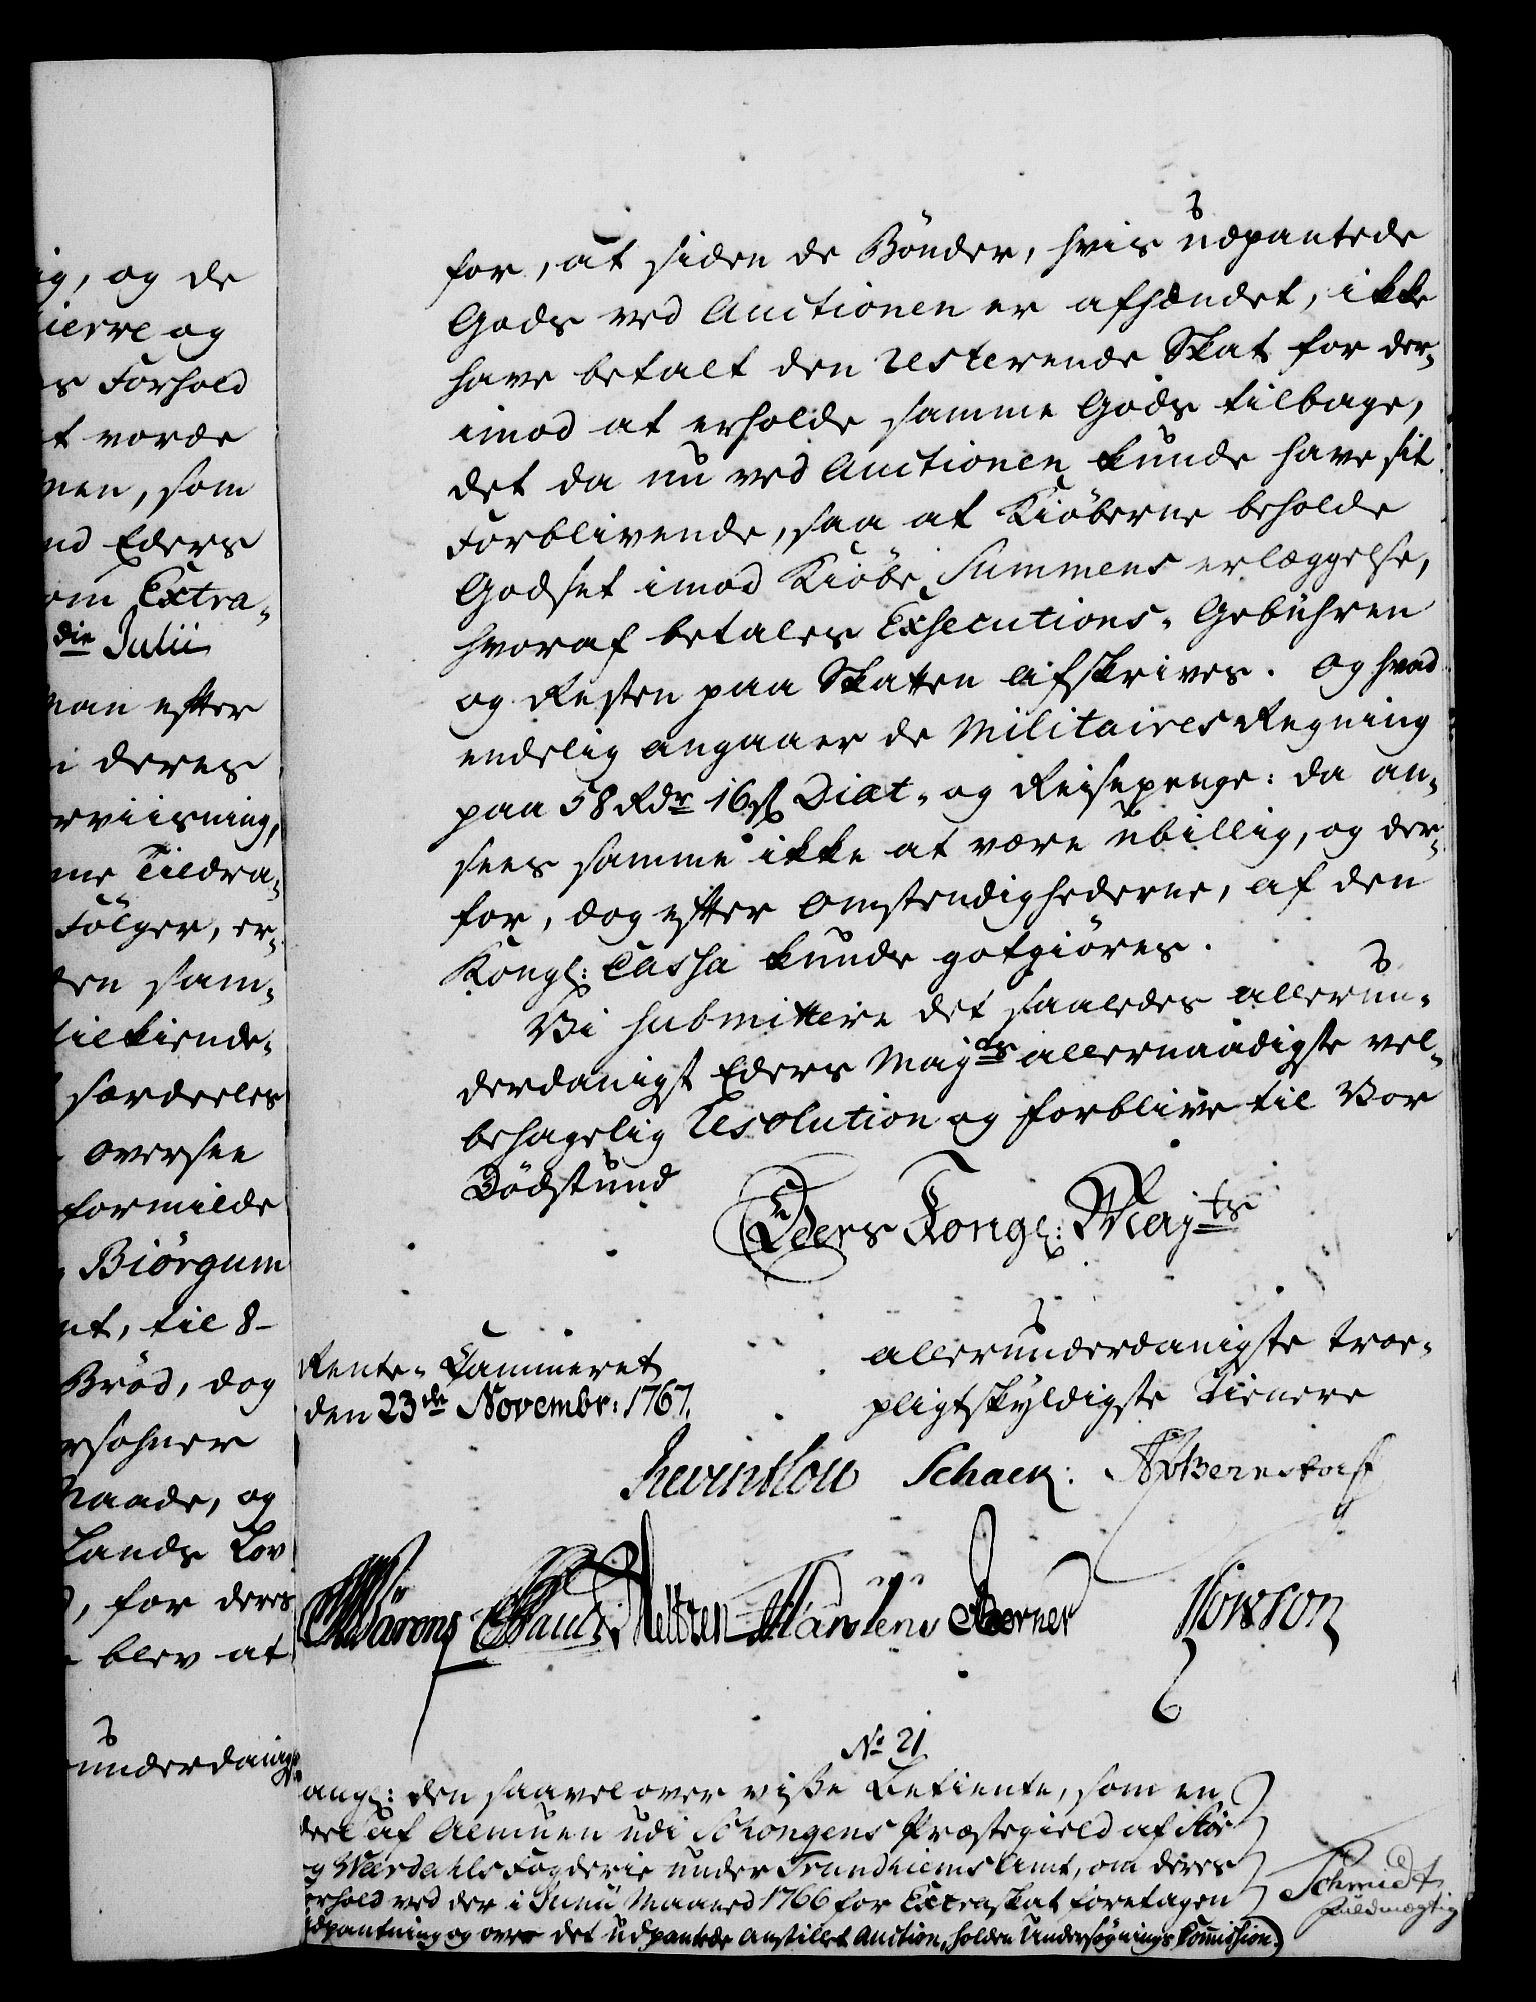 ig, og de
ierre og
s Forhold
t vorde
men, som
nd Eders
om Extra-
die Julii
man efter
i deres
rviisning,
me Tildra-
Fölger, er-
den sam-
tilkiende-
særdeeles
oversee
formilde
Biörgum
nt, til 8-
Bröd, dog
rsohner
Maade, og
Lands Lov
, for deres
blev at
underdanigst
for, at siden de Bönder, hvis udpantede
Gods ved Auctionen er afhændet, ikke
have betalt den resterende Skat for der-
imod at erholde samme Gods tilbage,
det da nu ved Auctionen kunde have sit
Forblivende, saa at Kiöberne beholde
Godset imod Kiöbe Summens erlæggelse,
hvoraf betales Exsecutions-Gebühren
og Resten paa Skatten afskrives. Og hvad
endelig angaaer de Militaires Regning
paa 58 Rdr 16 ß Diæt- og Reisepenge: da an-
sees samme ikke at være ubillig, og der-
for, dog efter Omstændighederne, af den
Kongl: Cassa kunde gotgiöres.
Vi submittere det saaledes allerun-
derdanigst Eders Mayts allernaadigste vel-
behagelig Resolution og forblive til Vor
Dödstund
Eders Kongl: Mayts
allerunderdanigste troe-
pligtskyldigste Tienere
Rente-Cammeret
den 23de Novembr: 1767.
Reventlou Schack: AP Bernstorff
Wärens Meltzen Martens Berner
No 21
angl: den saavel over visse Betiente, som en
deel af Almuen udi Schongens Præstegield af Stör
og Wærdahls Fogderie under Trundhiems Amt, om deres
Forhold ved der i Junii Maaned 1766 for Extraskat foretagen
Udpantning og over det udpantede anstillet Auction, holden Undersögnings Commission.
Schmidt
Fuldmægtig